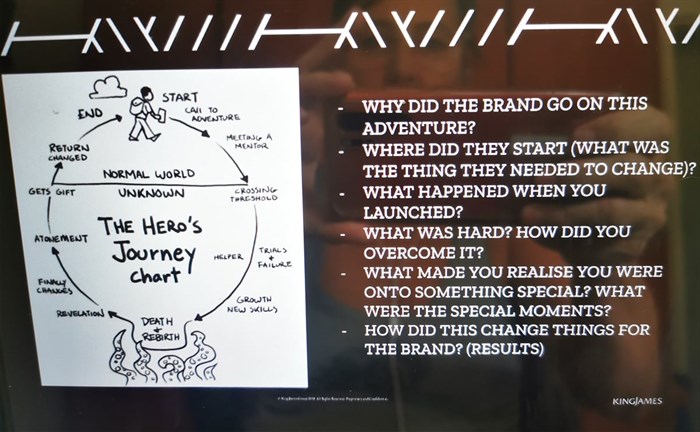 START
CALL TO
ADVENTURE
MEETING A
MENTOR
CROSSING
THRESHOLD
TRIALS
+
FAILURE
HELPER
GROWTH
NEW SKILLS
DEATH
+
REBIRTH
REVELATION
FINALLY
CHANGES
ATONEMENT
GETS GIFT
RETURN
CHANGED
END
NORMAL WORLD
UNKNOWN
THE HERO'S
Journey
chart
- WHY DID THE BRAND GO ON THIS
ADVENTURE?
- WHERE DID THEY START (WHAT WAS
THE THING THEY NEEDED TO CHANGE)?
- WHAT HAPPENED WHEN YOU
LAUNCHED?
- WHAT WAS HARD? HOW DID YOU
OVERCOME IT?
- WHAT MADE YOU REALISE YOU WERE
ONTO SOMETHING SPECIAL? WHAT
WERE THE SPECIAL MOMENTS?
- HOW DID THIS CHANGE THINGS FOR
THE BRAND? (RESULTS)
KINGJAMES